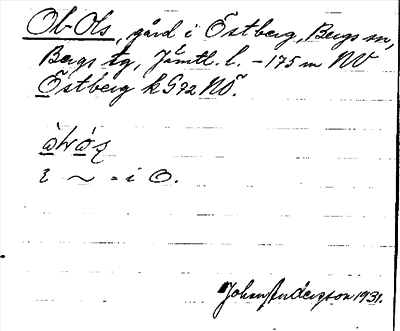 Ob-Ols, gård i Östberg, Bergs sn,
Bergs tg, Jämtl. l. - 175 m NV
Östberg k G92 NÖ.
i ~ = i O.
Johan Anderzson 1931.